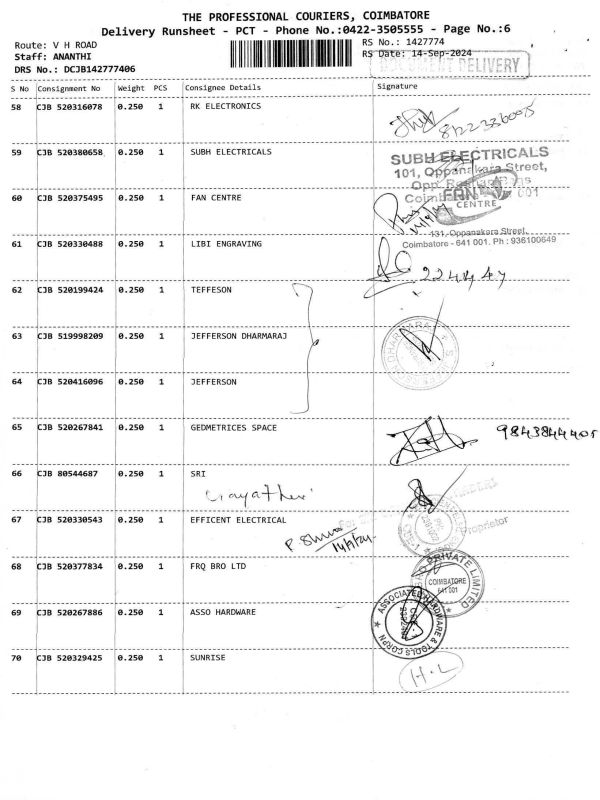 THE PROFESSIONAL COURIERS, COIMBATORE
Delivery Runsheet - PCT - Phone No.:0422-3505555 - Page No.:6
Route: V H ROAD
RS No.: 1427774
Staff: ANANTHI
RS Date: 14-Sep-2024
DOCUMENT DELIVERY
DRS No.: DCJB142777406
S No Consignment No Weight PCS Consignee Details Signature
58 CJB 520316078 0.250 1 RK ELECTRONICS
8122336005
59 CJB 520380658 0.250 1 SUBH ELECTRICALS
SUBH ELECTRICALS
101, Oppanakara Street,
60 CJB 520375495 0.250 1 FAN CENTRE
FAN CENTRE
131, Oppanakara Street,
Coimbatore - 641 001. Ph : 936100649
61 CJB 520330488 0.250 1 LIBI ENGRAVING
62 CJB 520199424 0.250 1 TEFFESON
63 CJB 519998209 0.250 1 JEFFERSON DHARMARAJ
64 CJB 520416096 0.250 1 JEFFERSON
65 CJB 520267841 0.250 1 GEDMETRICES SPACE
9843844405
66 CJB 80544687 0.250 1 SRI
Gayatheri
67 CJB 520330543 0.250 1 EFFICENT ELECTRICAL
Proprietor
68 CJB 520377834 0.250 1 FRQ BRO LTD
PRIVATE LIMITED
COIMBATORE
641 001
69 CJB 520267886 0.250 1 ASSO HARDWARE
ASSOCIATED HARDWARE & TOOLS CORPN
70 CJB 520329425 0.250 1 SUNRISE
H.L